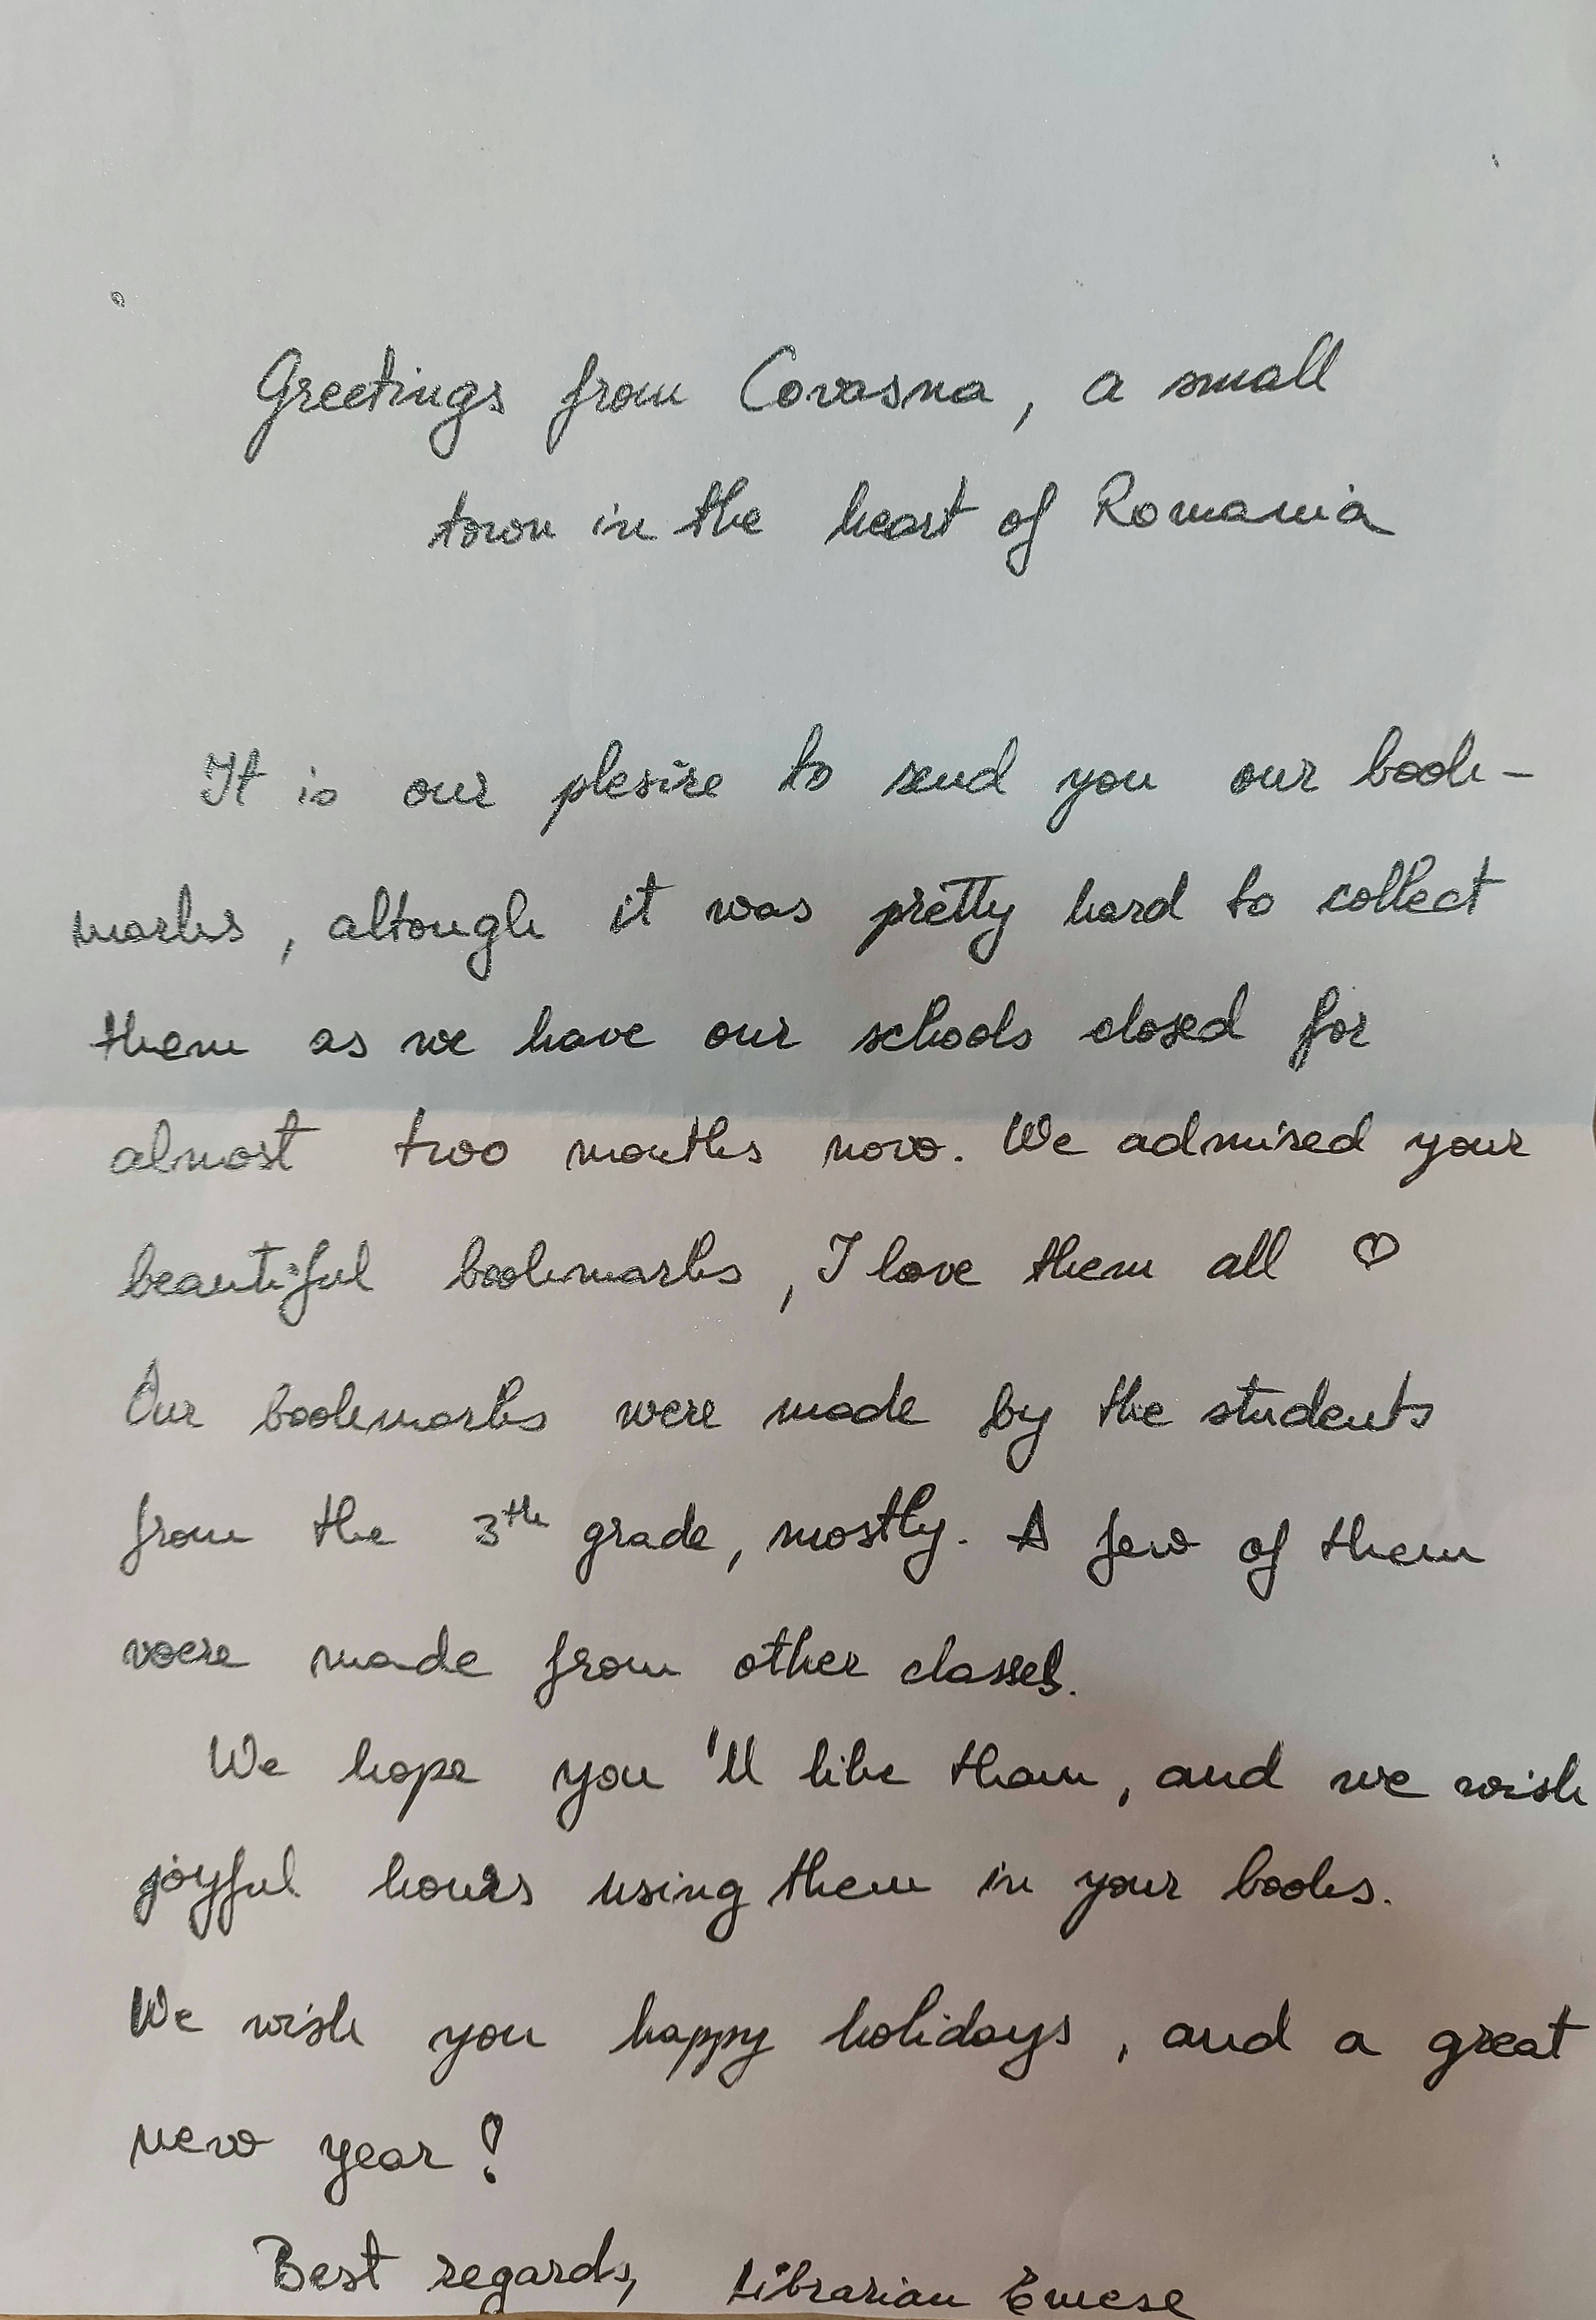 Greetings from Covasna, a small
town in the heart of Romania
It is our plesire to send you our book-
marks, altough it was pretty hard to collect
them as we have our schools closed for
almost two months now. We admired your
beautiful bookmarks, I love them all ♡
Our bookmarks were made by the students
from the 3th grade, mostly. A few of them
were made from other classes.
We hope you'll like tham, and we wish
joyful hours using them in your books.
We wish you happy holidays, and a great
new year!
Best regards, Librarian Emese